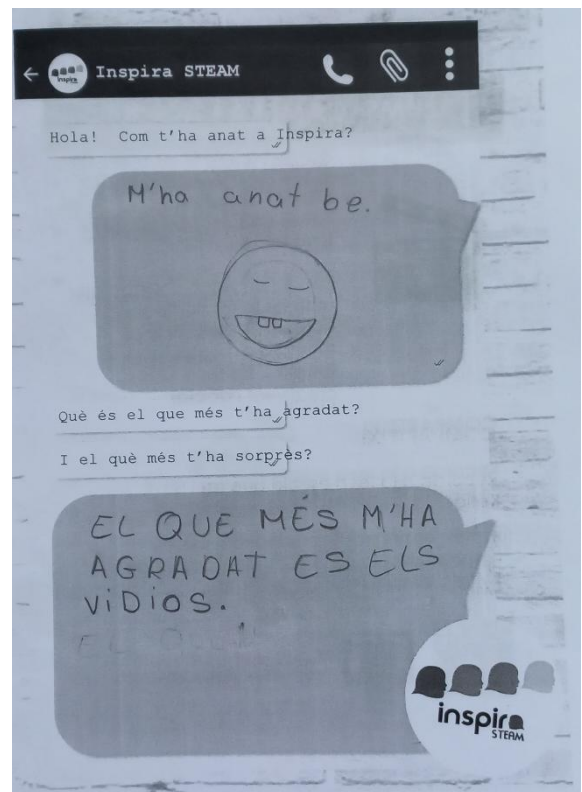 Inspira STEAM
Hola! Com t'ha anat a Inspira?
M'ha anat be.
Què és el que més t'ha agradat?
I el què més t'ha sorprès?
EL QUE MÉS M'HA
AGRADAT ES ELS
ViDiOS.
inspira
STEAM